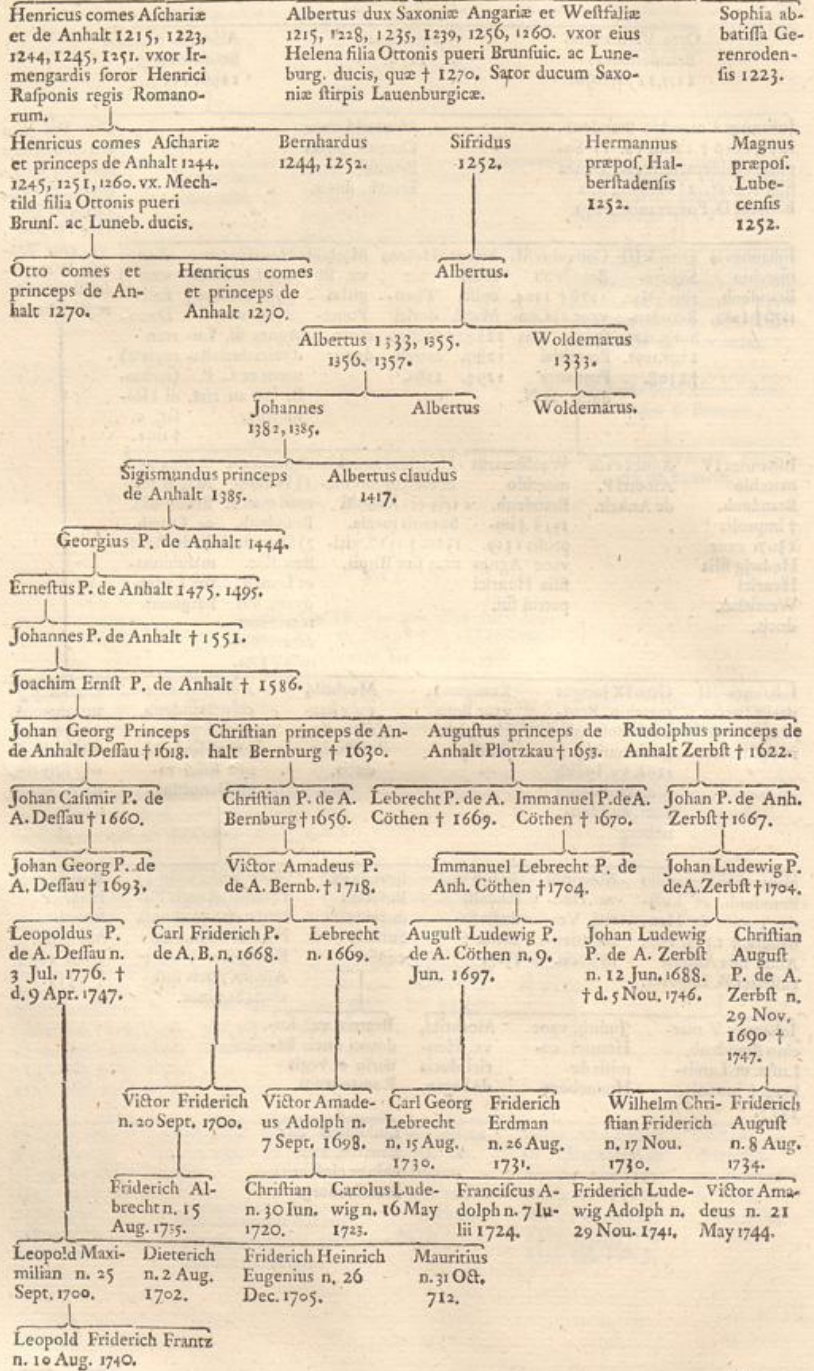 Henricus comes Aſchariæ
et de Anhalt 1215, 1223,
1244, 1245, 1251. vxor Ir-
mengardis ſoror Henrici
Raſponis regis Romano-
rum.
Albertus dux Saxoniæ Angariæ et Weſtfaliæ
1215, 1228, 1235, 1239, 1256, 1260. vxor eius
Helena filia Ottonis pueri Brunſuic. ac Lune-
burg. ducis, quæ † 1270. Sator ducum Saxo-
niæ ſtirpis Lauenburgicæ.
Sophia ab-
batiſſa Ge-
renroden-
ſis 1223.
Henricus comes Aſchariæ
et princeps de Anhalt 1244.
1245, 1251, 1260. vx. Mech-
tild filia Ottonis pueri
Brunſ. ac Luneb. ducis.
Bernhardus
1244, 1252.
Sifridus
1252.
Hermannus
præpoſ. Hal-
berſtadenſis
1252.
Magnus
præpoſ.
Lube-
cenſis
1252.
Otto comes et
princeps de An-
halt 1270.
Henricus comes
et princeps de
Anhalt 1270.
Albertus.
Albertus 1333, 1355.
1356. 1357.
Woldemarus
1333.
Johannes
1382, 1385.
Albertus
Woldemarus.
Sigismundus princeps
de Anhalt 1385.
Albertus claudus
1417.
Georgius P. de Anhalt 1444.
Erneſtus P. de Anhalt 1475. 1495.
Johannes P. de Anhalt † 1551.
Joachim Ernſt P. de Anhalt † 1586.
Johan Georg Princeps
de Anhalt Deſſau † 1618.
Chriſtian princeps de An-
halt Bernburg † 1630.
Auguſtus princeps de
Anhalt Plotzkau † 1653.
Rudolphus princeps de
Anhalt Zerbſt † 1622.
Johan Caſimir P. de
A. Deſſau † 1660.
Chriſtian P. de A.
Bernburg † 1656.
Lebrecht P. de A.
Cöthen † 1669.
Immanuel P. de A.
Cöthen † 1670.
Johan P. de Anh.
Zerbſt † 1667.
Johan Georg P. de
A. Deſſau † 1693.
Victor Amadeus P.
de A. Bernb. † 1718.
Immanuel Lebrecht P. de
Anh. Cöthen † 1704.
Johan Ludewig P.
de A. Zerbſt † 1704.
Leopoldus P.
de A. Deſſau n.
3 Jul. 1776. †
d. 9 Apr. 1747.
Carl Friderich P.
de A. B. n. 1668.
Lebrecht
n. 1669.
Auguſt Ludewig P.
de A. Cöthen n. 9.
Jun. 1697.
Johan Ludewig
P. de A. Zerbſt
n. 12 Jun. 1688.
† d. 5 Nou. 1746.
Chriſtian
Auguſt
P. de A.
Zerbſt n.
29 Nov.
1690 †
1747.
Victor Friderich
n. 20 Sept. 1700.
Victor Amade-
us Adolph n.
7 Sept. 1698.
Carl Georg
Lebrecht
n. 15 Aug.
1730.
Friderich
Erdman
n. 26 Aug.
1731.
Wilhelm Chri-
ſtian Friderich
n. 17 Nou.
1730.
Friderich
Auguſt
n. 8 Aug.
1734.
Friderich Al-
brecht n. 15
Aug. 1735.
Chriſtian
n. 30 Iun.
1720.
Carolus Lude-
wig n. 16 May
1723.
Franciſcus A-
dolph n. 7 Iu-
lii 1724.
Friderich Lude-
wig Adolph n.
29 Nou. 1741.
Victor Ama-
deus n. 21
May 1744.
Leopold Maxi-
milian n. 25
Sept. 1700.
Dieterich
n. 2 Aug.
1702.
Friderich Heinrich
Eugenius n. 26
Dec. 1705.
Mauritius
n. 31 Oct.
712.
Leopold Friderich Frantz
n. 10 Aug. 1740.